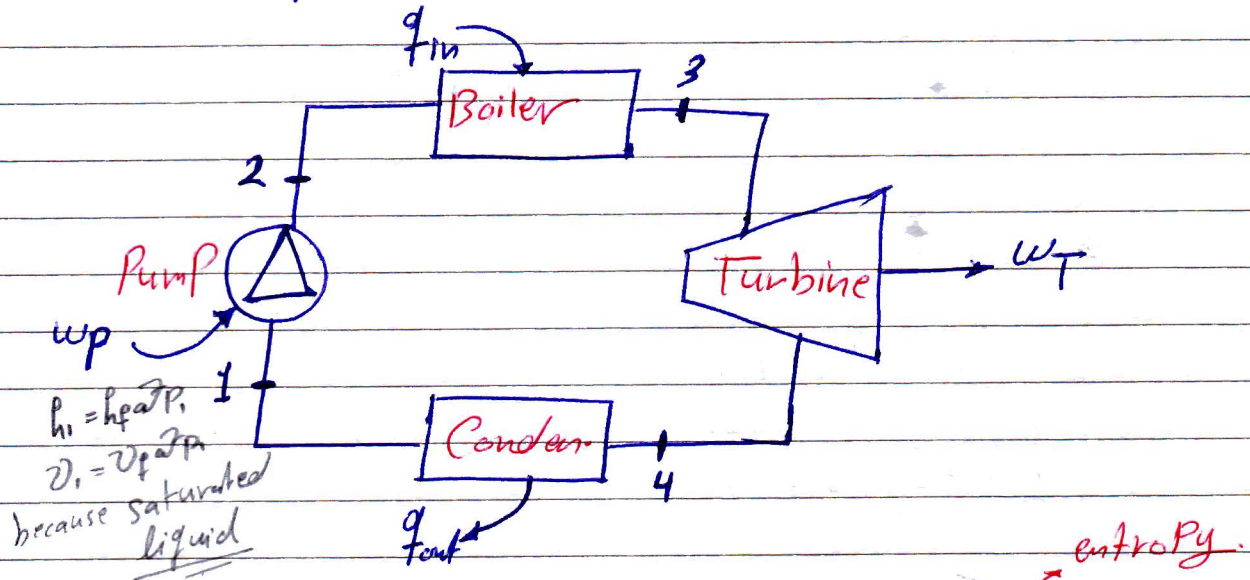 qin
3
Boiler
2
Pump
Turbine
wT
wp
1
h1 = hf at P1
v1 = vf at P1
because saturated
liquid
Conden.
4
qout
entropy.